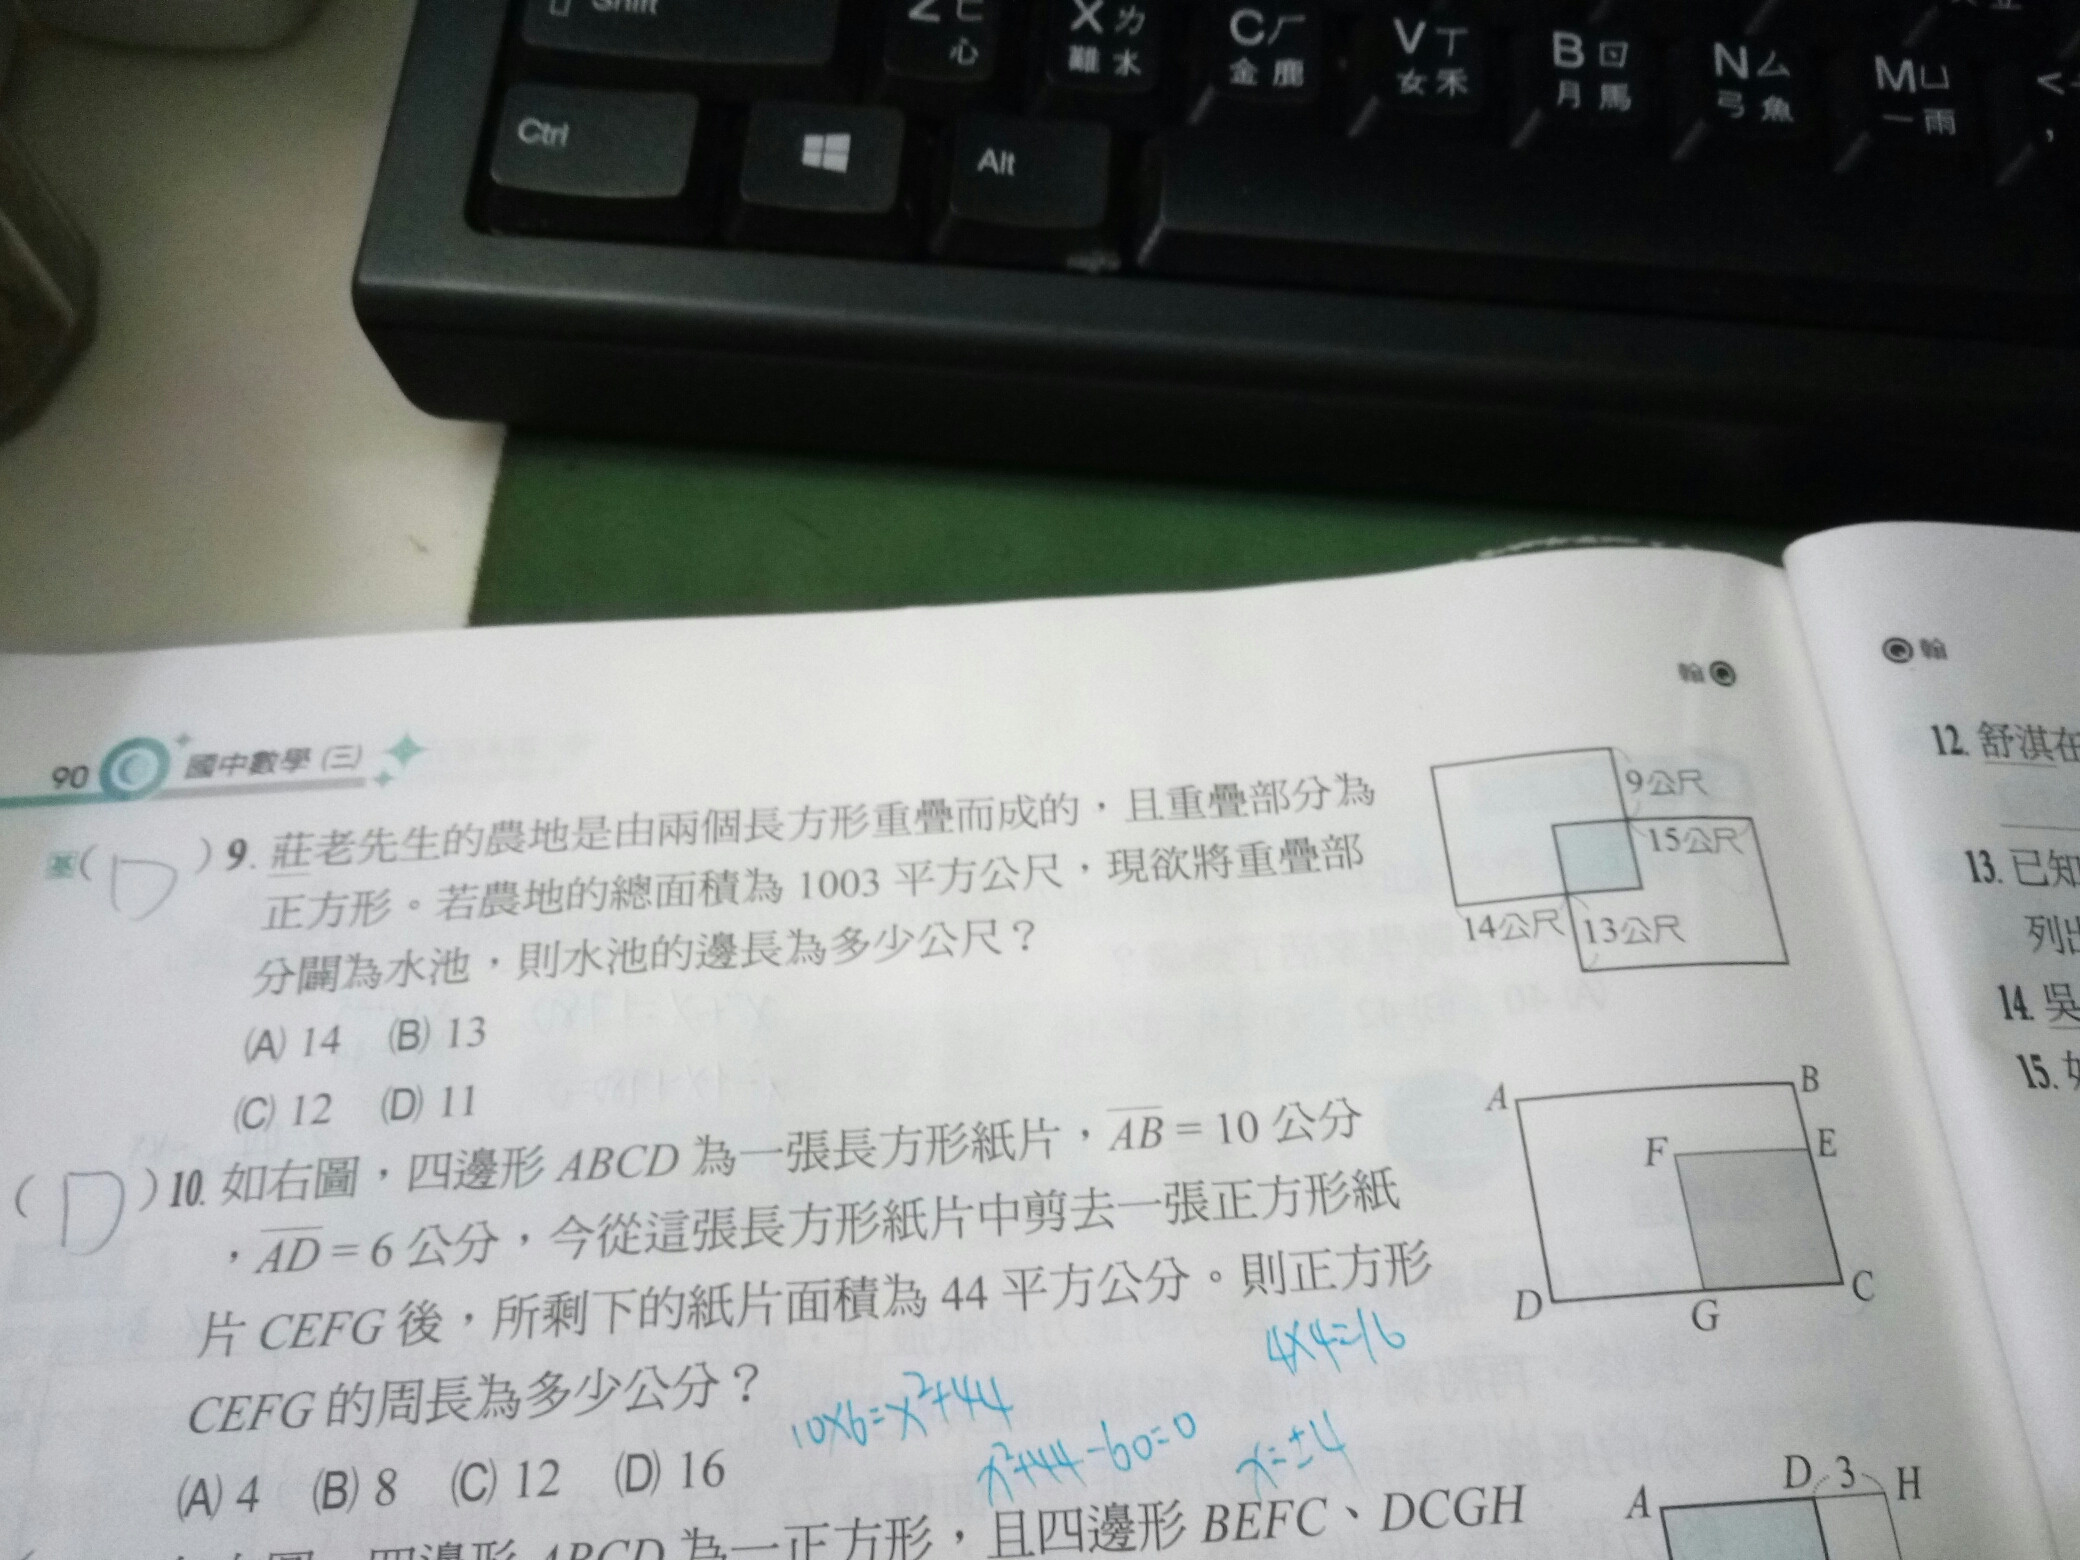 Shift
Z
心
X ㄌ
難 水
C ㄏ
金
V ㄒ
女 禾
B ㄖ
月 馬
N ㄙ
弓 魚
M ㄩ
一 雨
<
,
Ctrl
Alt
翰
翰
90 國中數學(三)
基( D )9. 莊老先生的農地是由兩個長方形重疊而成的，且重疊部分為
正方形。若農地的總面積為 1003 平方公尺，現欲將重疊部
分闢為水池，則水池的邊長為多少公尺？
(A) 14 (B) 13
(C) 12 (D) 11
9公尺
15公尺
14公尺
13公尺
( D )10. 如右圖，四邊形 ABCD 為一張長方形紙片，AB = 10 公分
，AD = 6 公分，今從這張長方形紙片中剪去一張正方形紙
片 CEFG 後，所剩下的紙片面積為 44 平方公分。則正方形
CEFG 的周長為多少公分？
(A) 4 (B) 8 (C) 12 (D) 16
10×6=x²+44
x²+44-60=0
x=±4
4×4=16
A
B
F
E
D
G
C
四邊形 ABCD 為一正方形，且四邊形 BEFC、DCGH
A
D
3
H
12. 舒淇在
13. 已知
列出
14. 吳
15.